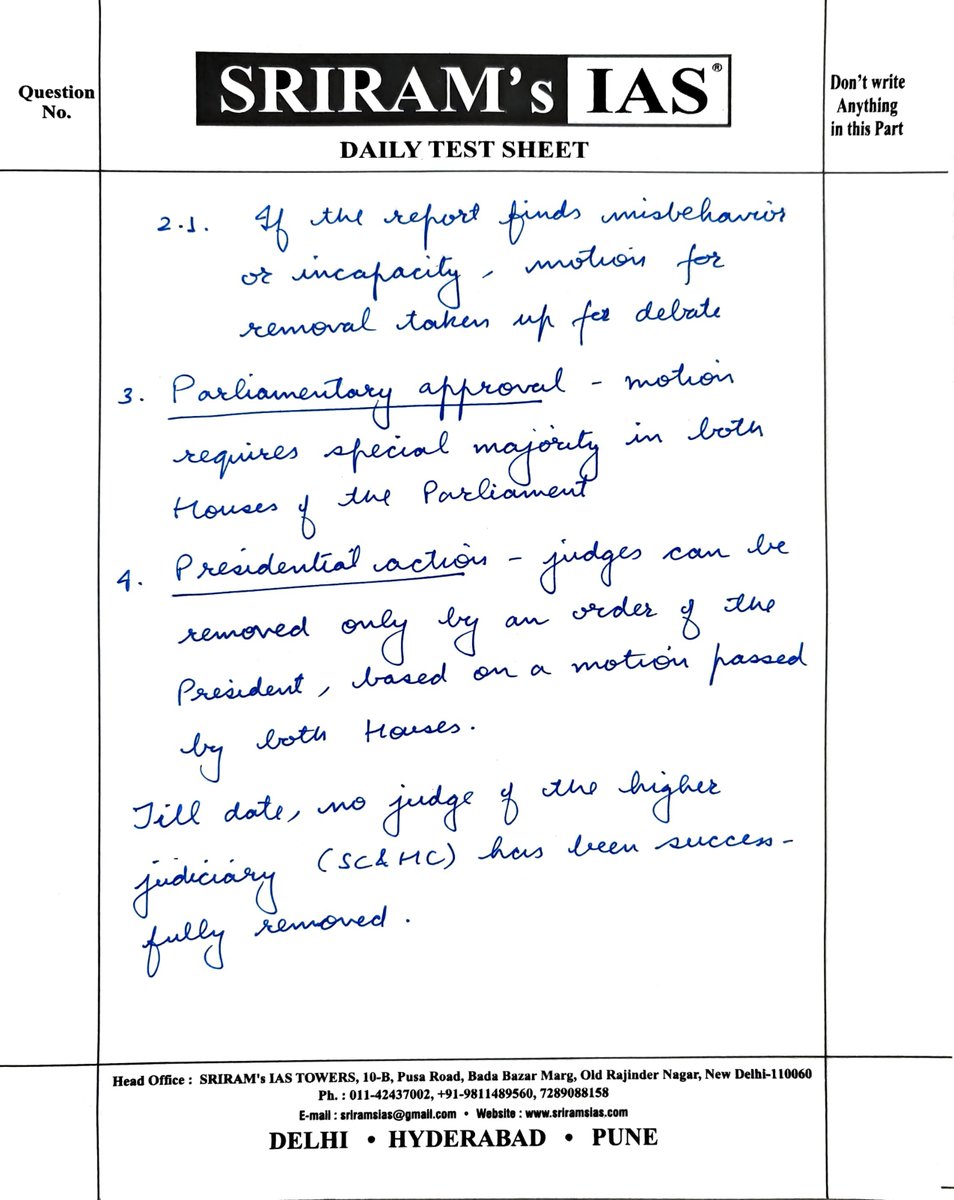 Question
No.
SRIRAM's IAS®
DAILY TEST SHEET
Don't write
Anything
in this Part
2.1. If the report finds misbehavior
or incapacity, motion for
removal taken up for debate
3. Parliamentary approval - motion
requires special majority in both
Houses of the Parliament
4. Presidential action - judges can be
removed only by an order of the
President, based on a motion passed
by both Houses.
Till date, no judge of the higher
judiciary (SC & HC) has been success-
fully removed.
Head Office : SRIRAM's IAS TOWERS, 10-B, Pusa Road, Bada Bazar Marg, Old Rajinder Nagar, New Delhi-110060
Ph. : 011-42437002, +91-9811489560, 7289088158
E-mail : sriramsias@gmail.com • Website : www.sriramsias.com
DELHI • HYDERABAD • PUNE